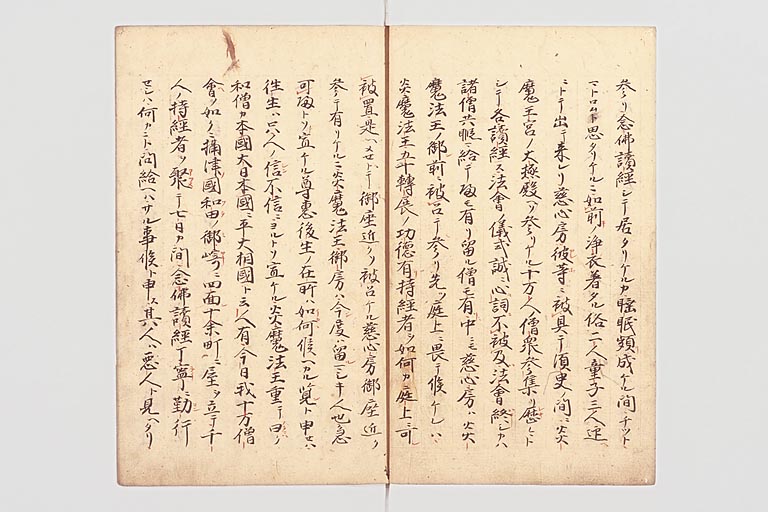 参リ念佛讀經シテ居タリケルカ睡眠頻成ケル間チツト
マトロム下思タリケルニ如前ノ浄衣著タル俗二人童子三人迎
ニトテ出テ来レリ慈心房彼等ニ被具テ須臾ノ間ニ炎
魔王宮ノ大極殿ヘソ参リケル十万人僧衆参集リ歴々ト
シテ各讀經ス法會ノ儀式誠ニ心詞不被及法會終シカハ
諸僧共暇給テ歸モ有リ留ル僧モ有中ニモ慈心房ハ炎
魔法王ノ御前ニ被召テ参リ先ツ庭上ニ畏テ候ケレハ
炎魔法王五十轉展ノ功德有持經者ヲ如何カ庭上ニ可
被置是ヘメセトテ御座近クソ被召ケル慈心房御座近ク
参テ有リケルニ炎魔法王御房ハ今度ハ留マシキ人也急
可歸トソ宣ケル尊惠後生ノ在所ハ如何候ヘカルラント申セハ
往生ハ只人ノ信不信ニヨルトソ宣ケル炎魔法王重テ曰ク
和僧カ本國大日本國ニ平大相國ト云人有今日我十万僧
會ノ如ク摂津國和田ノ御崎ニ四面十余町ニ屋ヲ立テ千
人ノ持經者ヲ聚テ七日カ間念佛讀經丁寧ニ勤行
セシハ何カニト問給ヘハサル事候ト申ス其人ハ悪人ト見ヘタリ